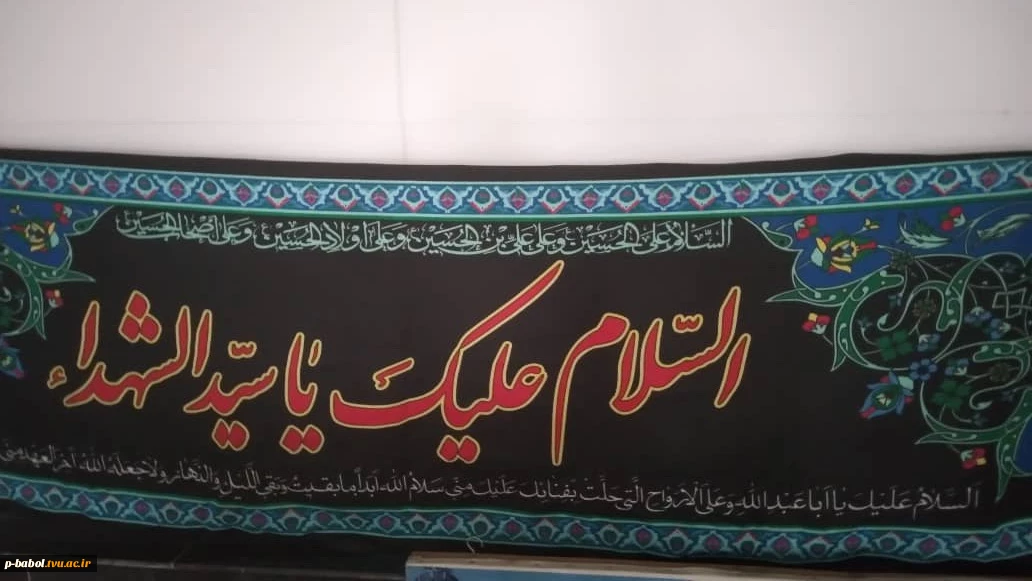 السَّلامُ عَلَى الحُسَيْنِ وَعَلى عَلِيِّ بْنِ الحُسَيْنِ وَعَلى اَوْلادِ الحُسَيْنِ وَعَلى اَصْحابِ الحُسَيْنِ
السّلام علیکَ یٰا سیّد الشهداء
اَلسَّلامُ عَلَيْكَ يا اَبا عَبْدِ اللهِ وَعَلَى الاَرْواحِ الَّتي حَلَّتْ بِفِنائِكَ عَلَيْكَ مِنّي سَلامُ اللهِ اَبَداً ما بَقيتُ وَبَقِيَ اللَّيْلُ وَالنَّهارُ وَلا جَعَلَهُ اللهُ آخِرَ الْعَهْدِ مِنّي
p-babol.tvu.ac.ir